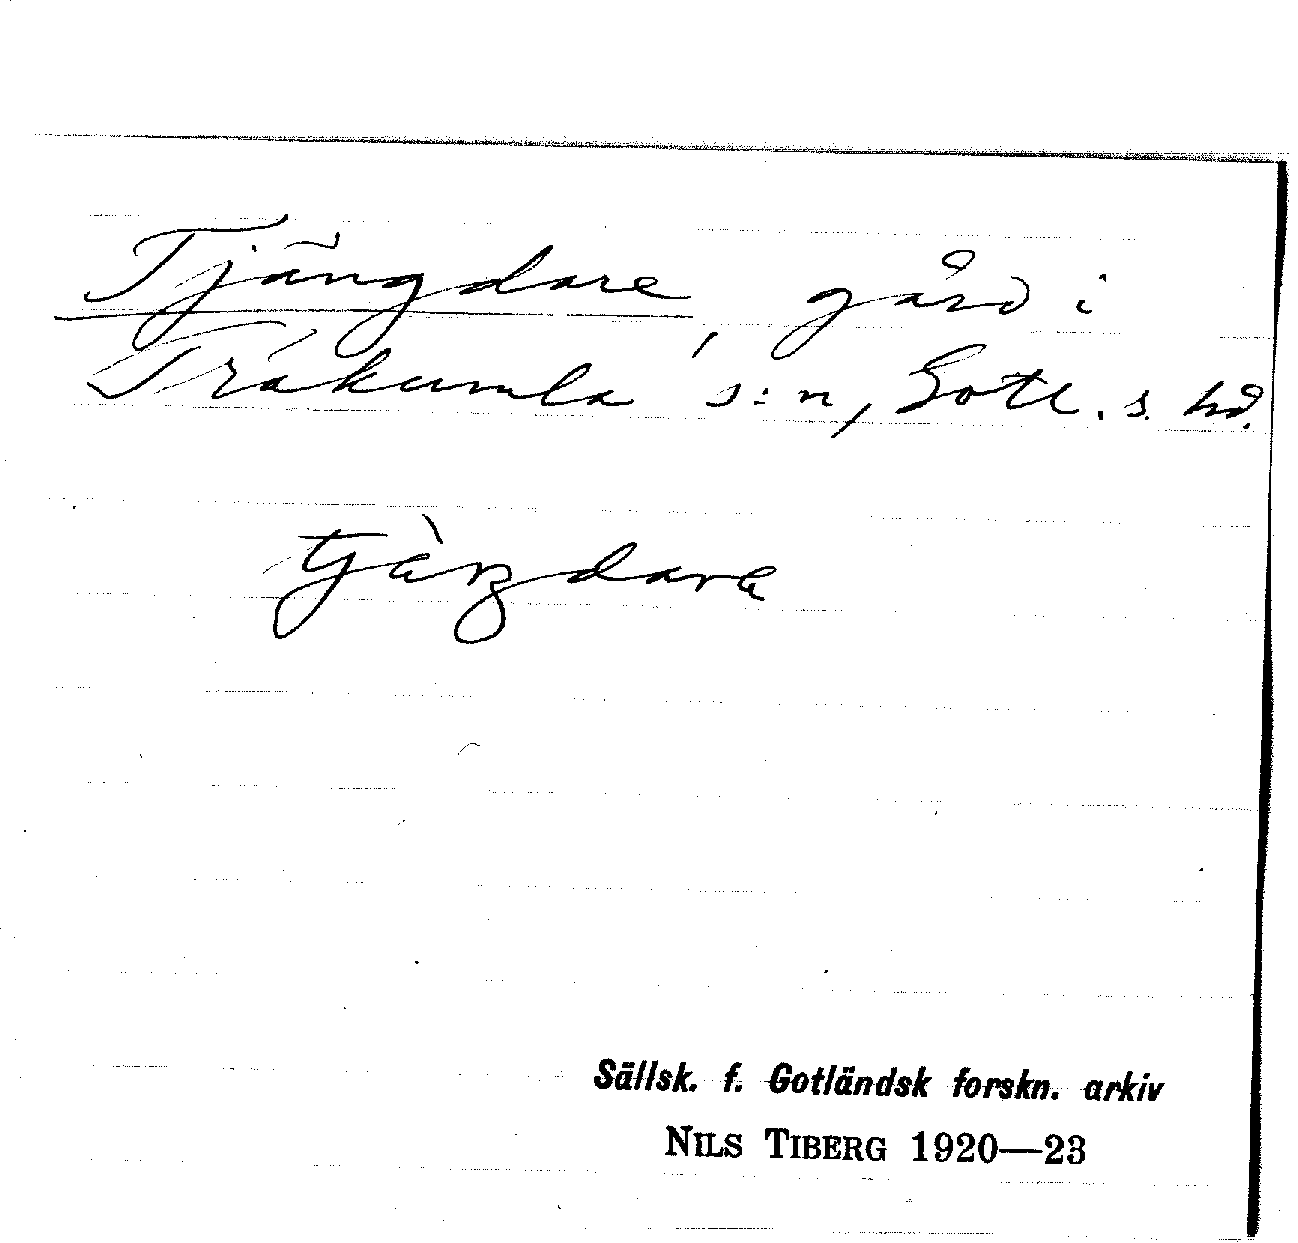 Tjängdare, gård i
Träkumla s:n, Gotl. s. hd.
tjàŋdara
Sällsk. f. Gotländsk forskn. arkiv
NILS TIBERG 1920—23